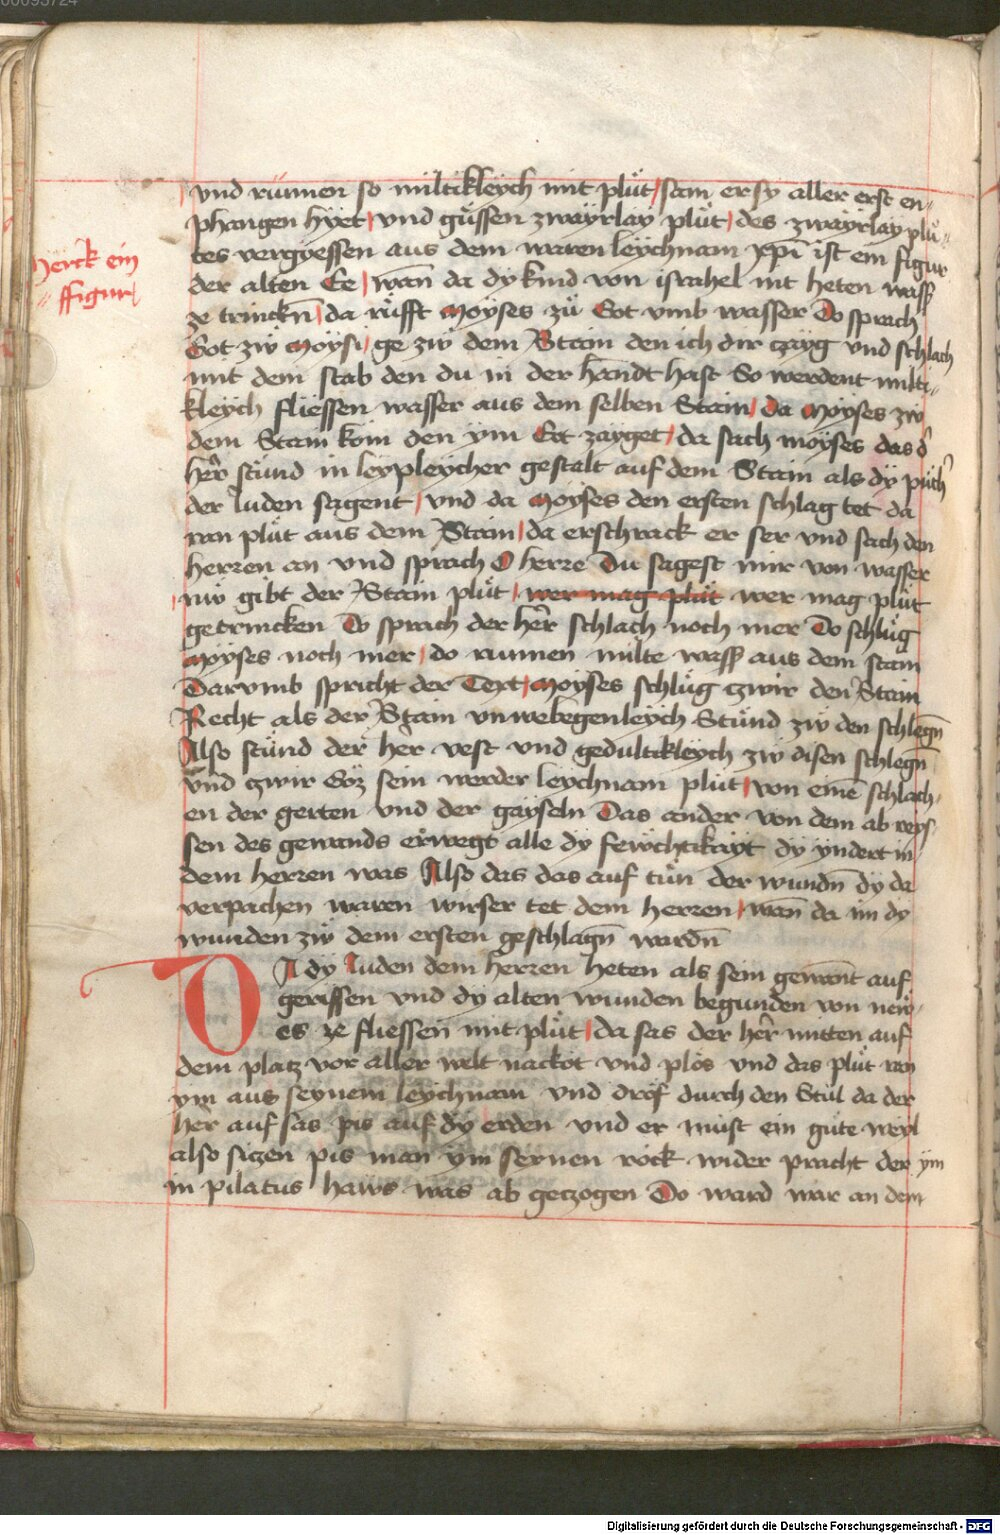 vnd rünnen so miltikleych mit plüt / sam er sy aller erst en„
phangen hyet / vnd güssen zwayrlay plüt / des zwayrlay plü„
tes vergyessen aus dem waren leychnam xpī ist ein figur
Merck ein
figur
der alten Ee / wan̄ da dy kind von israhel nit heten wass̃
ze trinckn̄ / da rüfft Moyses zü Got vmb wasser Do sprach
Got zw Moysi / ge zw dem Stain den ich dir czayg vnd schlach
mit dem stab den du in der handt hast So werdent milti„
kleych fliessen wasser aus dem selben Stain / da Moyses zw
dem Stain kom den ym Got zayget / da sach moyses das d̉
her̄ stünd in leypleycher gestalt auf dem Stain als dy püch̉
der Iuden sagent / vnd da Moyses den ersten schlag tet da
ran plüt aus dem Stain / da erschrack er ser vnd sach den
herren an vnd sprach O herre Du sagest mir von wasser
nw gibt der Stain plüt / wer mag plüt wer mag plüt
getrincken Do sprach der her̄ schlach noch mer Do schlüg
Moyses noch mer / do runnen milte wass̃ aus dem stain
Darvmb spricht der Text / Moyses schlüg czwir den Stain
Recht als der Stain vnwebegenleych Stünd zw den schlegn̄
Also stünd der her vest vnd gedultikleych zw disen schlegn̄
vnd czwir Goz sein werder leychnam plüt / von einē schlach„
en der gerten vnd der gayseln Das ander von dem ab reys„
sen des gewands erwegt alle dy fewchtikayt dy yndert in
dem herren was Also das das auf tün der wundn̄ dy da
verpachen waren wirser tet dem herren / wan̄ da im dy
wunden zw dem ersten geschlagn̄ wardn̄
DA dy Iuden dem herren heten als sein gewant auf
gerissen vnd dy alten wunden begunden von new„
es ze fliessen mit plüt / da sas der her̄ mitten auf
dem placz vor aller welt nackot vnd plos vnd das plüt ran
ym aus seynem leychnam vnd drof durch den Stül da der
her auf sas pis auf dy erden vnd er müst ein güte weyl
also siczen pis man ym seynen rock wider pracht der ym
in pilatus haws was ab geczogen Do ward war an dem
Digitalisierung gefördert durch die Deutsche Forschungsgemeinschaft - DFG